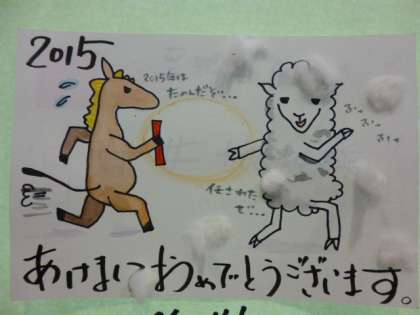 2015
2015年は
たのんだぞ...
ふぅ
ふぅ
ふぅ
任された
ぜ...
あけましておめでとうございます。